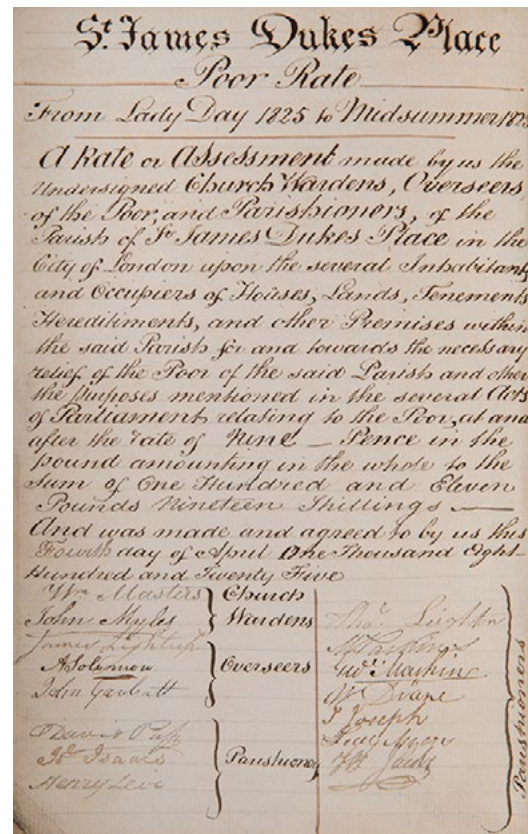 St. James Dukes Place
Poor Rate
From Lady Day 1825 to Midsummer 1825
A Rate or Assessment made by us the
Undersigned Church Wardens, Overseers
of the Poor, and Parishioners, of the
Parish of St. James Dukes Place in the
City of London upon the several Inhabitants
and Occupiers of Houses, Lands, Tenements
Hereditiments, and other Premises within
the said Parish for and towards the necessary
relief of the Poor of the said Parish and other
the Purposes mentioned in the several Acts
of Parliament relating to the Poor, at and
after the rate of Nine — Pence in the
pound amounting in the whole to the
Sum of One Hundred and Eleven
Pounds Nineteen Shillings —
And was made and agreed to by us this
Fourth day of April One Thousand Eight
Hundred and Twenty Five
Wm. Masters
John Myles
Church
Wardens
James
A Solomon
John
Overseers
David
Isaacs
Henry Levi
Parishioners
Thos. Leighton
Machin
J Joseph
Parishioners